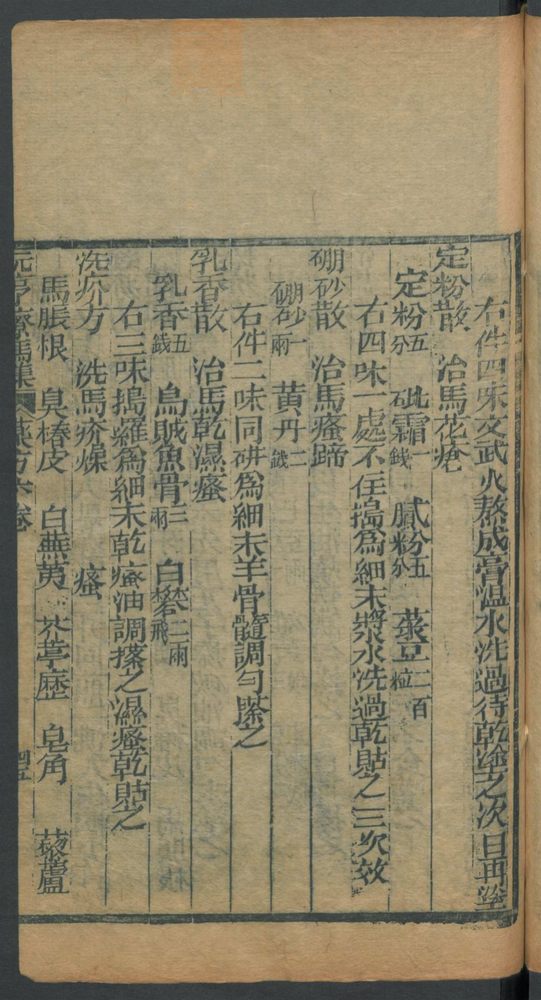 右件四味文武火熬成膏溫水洗過待乾塗之次日再塗
定粉散　治馬花瘡
定粉五分　砒霜一錢　膩粉五分　菉豆二百粒
右四味一處不住搗為細末漿水洗過乾貼之三次效
硼砂散　治馬瘙蹄
硼砂一兩　黄丹二錢
右件二味同研為細末羊骨髓調勻塗之
乳香散　治馬乾濕瘙
乳香五錢　烏賊魚骨三兩　白礬二兩飛
右三味搗羅為細末乾瘙油調搽之濕瘙乾貼之
洗疥方　洗馬疥燥　瘙
馬脹恨　臭椿皮　白蕪荑　芥葶歷　皂角　藜蘆
元亨療馬集